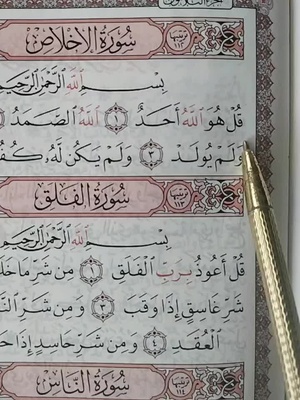 سُورَةُ الإِخْلَاصِ ترتيبها ١١٢
بِسْمِ ٱللَّهِ ٱلرَّحْمَٰنِ ٱلرَّحِيمِ
قُلْ هُوَ ٱللَّهُ أَحَدٌ ١ ٱللَّهُ ٱلصَّمَدُ
وَلَمْ يُولَدْ ٣ وَلَمْ يَكُن لَّهُۥ كُفُ
سُورَةُ الفَلَقِ ترتيبها ١١٣
بِسْمِ ٱللَّهِ ٱلرَّحْمَٰنِ ٱلرَّحِيمِ
قُلْ أَعُوذُ بِرَبِّ ٱلْفَلَقِ ١ مِن شَرِّ مَا خَلَ
شَرِّ غَاسِقٍ إِذَا وَقَبَ ٣ وَمِن شَرِّ ٱلنَّ
ٱلْعُقَدِ ٤ وَمِن شَرِّ حَاسِدٍ إِذَا حَ
سُورَةُ النَّاسِ ترتيبها ١١٤